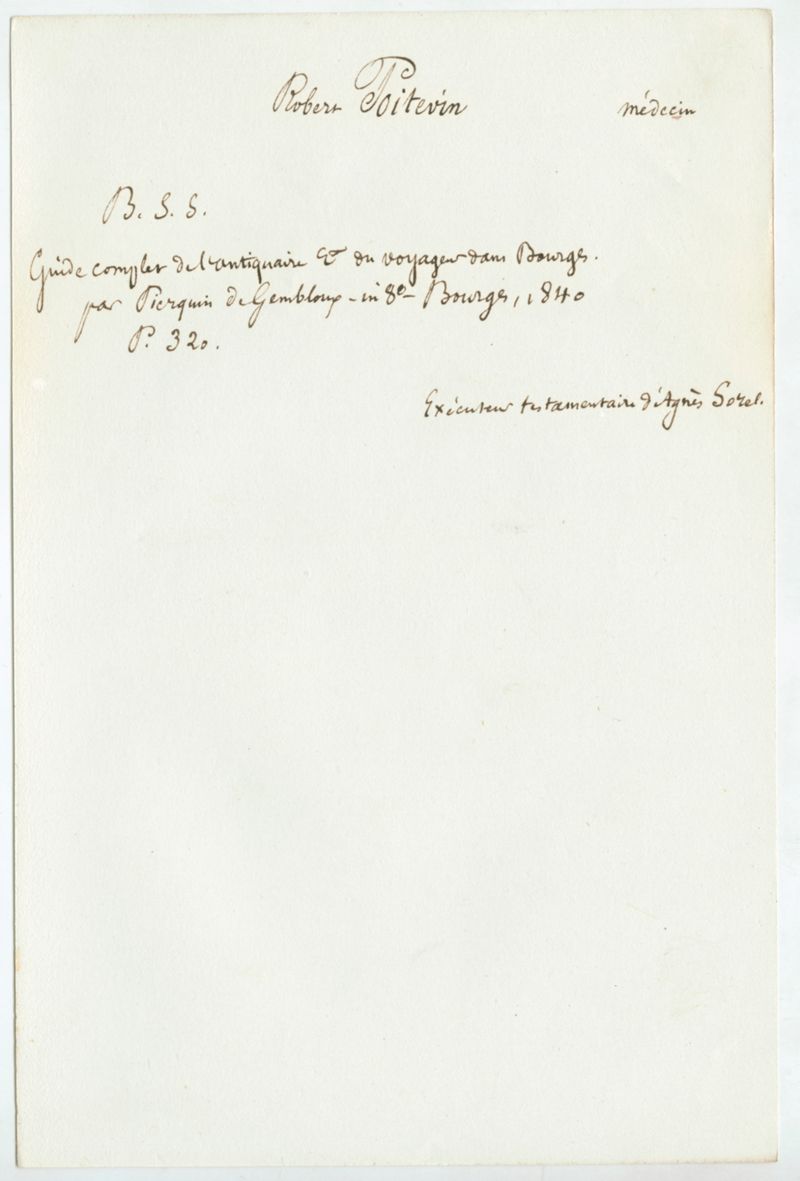 Robert Poitevin médecin
B. S. S.
Guide complet de l'antiquaire & du voyageur dans Bourges.
par Pierquin de Gembloux - in 8º - Bourges, 1840
P. 320.
Exécuteur testamentaire d'Agnès Sorel.